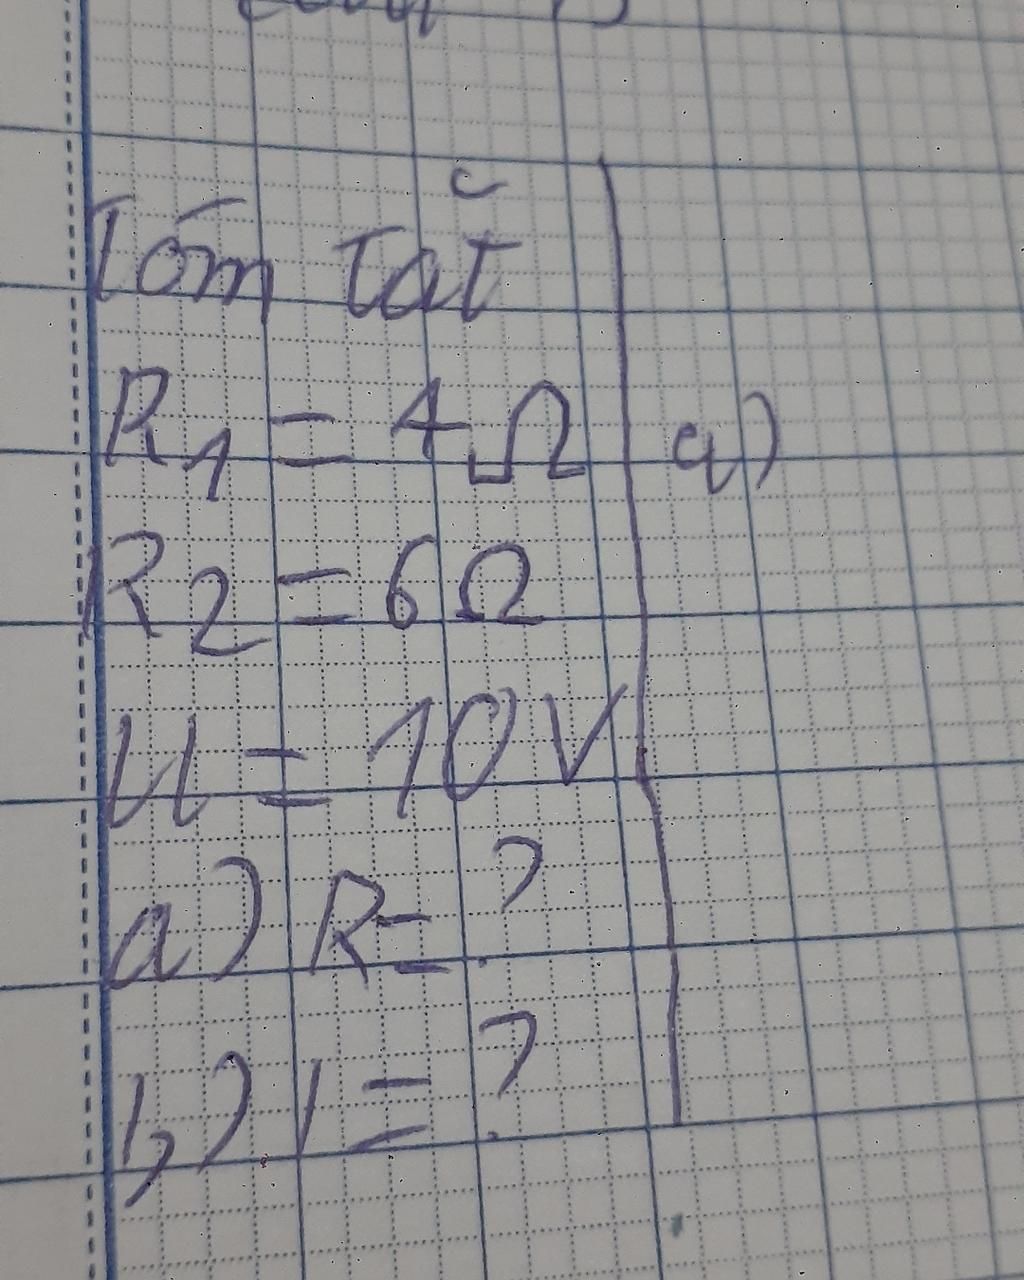 Tóm tắt
R1 = 4Ω
a)
R2 = 6Ω
U = 10V
a) R = ?
b) I = ?